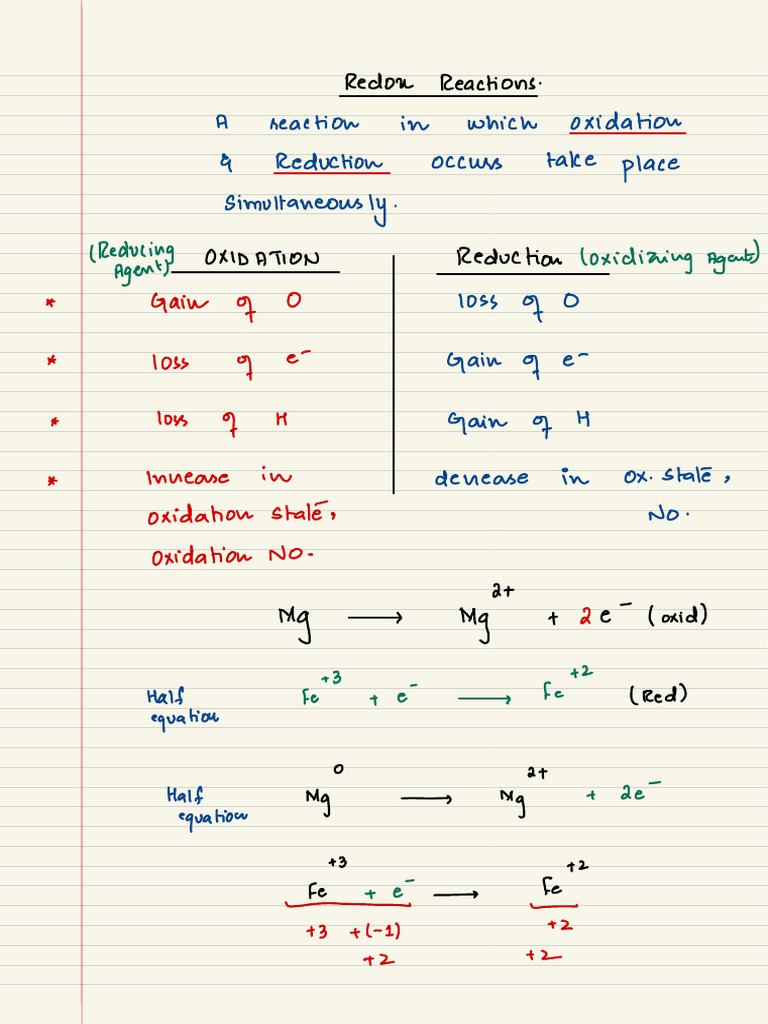 Redox Reactions.
A reaction in which oxidation
& Reduction occurs take place
simultaneously.
(Reducing Agent) OXIDATION
* Gain of O
* loss of e⁻
* loss of H
* Increase in
oxidation state,
oxidation NO.
Reduction (oxidizing Agent)
loss of O
Gain of e⁻
Gain of H
decrease in ox. state,
NO.
Mg ⟶ Mg²⁺ + 2e⁻ (oxid)
Half equation Fe⁺³ + e⁻ ⟶ Fe⁺² (Red)
Half equation Mg⁰ ⟶ Mg²⁺ + 2e⁻
Fe⁺³ + e⁻ ⟶ Fe⁺²
+3 +(-1) +2
+2 +2